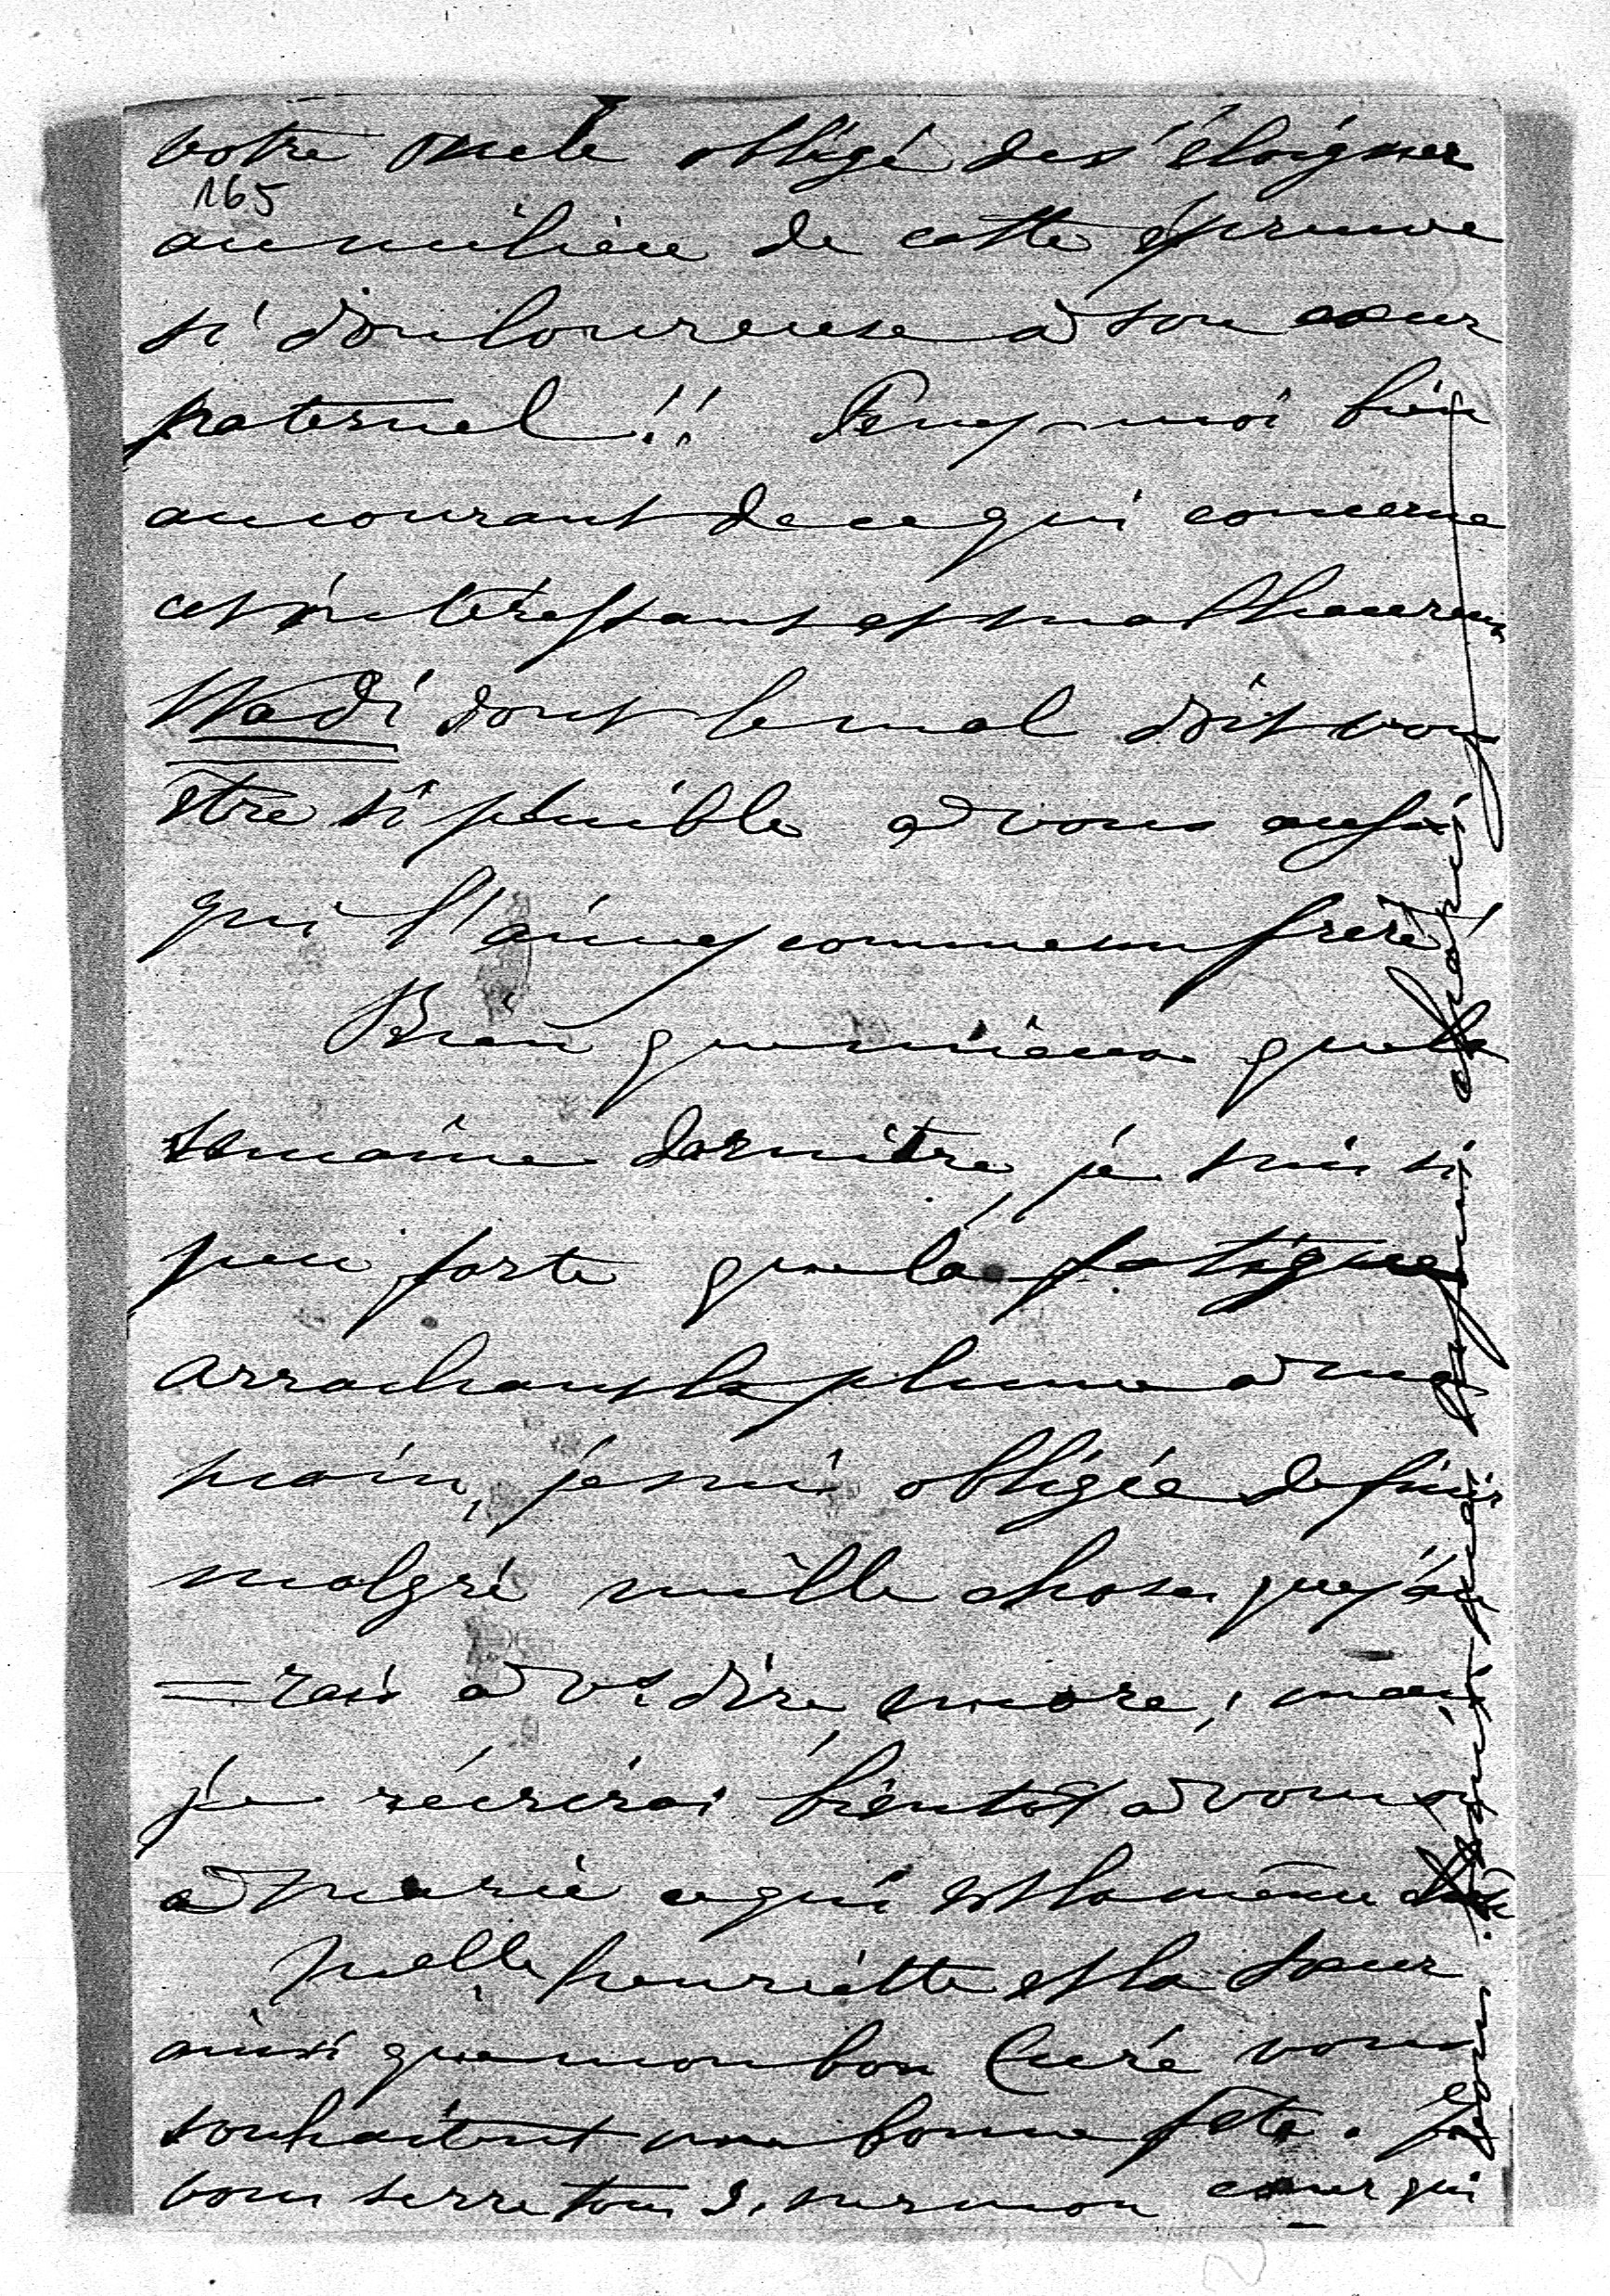 votre oncle obligé de s'éloigner
165
au milieu de cette épreuve
si douloureuse à son cœur
paternel !! Tenez-moi bien
au courant de ce qui concerne
cet intéressant et malheureux
Wadi dont le mal doit vous
être si pénible à vous aussi
qui l'aimez comme un frère
Bien que mieux que la
semaine dernière, je suis si
peu forte que la fatigue
arrachant la plume à ma
main, je suis obligée de finir
malgré mille choses que j'au
=rais à vs dire encore ; mais
je récrirai bientôt à vous ou
à Marie ce qui est la même chose
Melle henriette et la sœur
ainsi que mon bon Curé vous
souhaitent une bonne fête. Je
vous serre tous 3 sur mon cœur qui